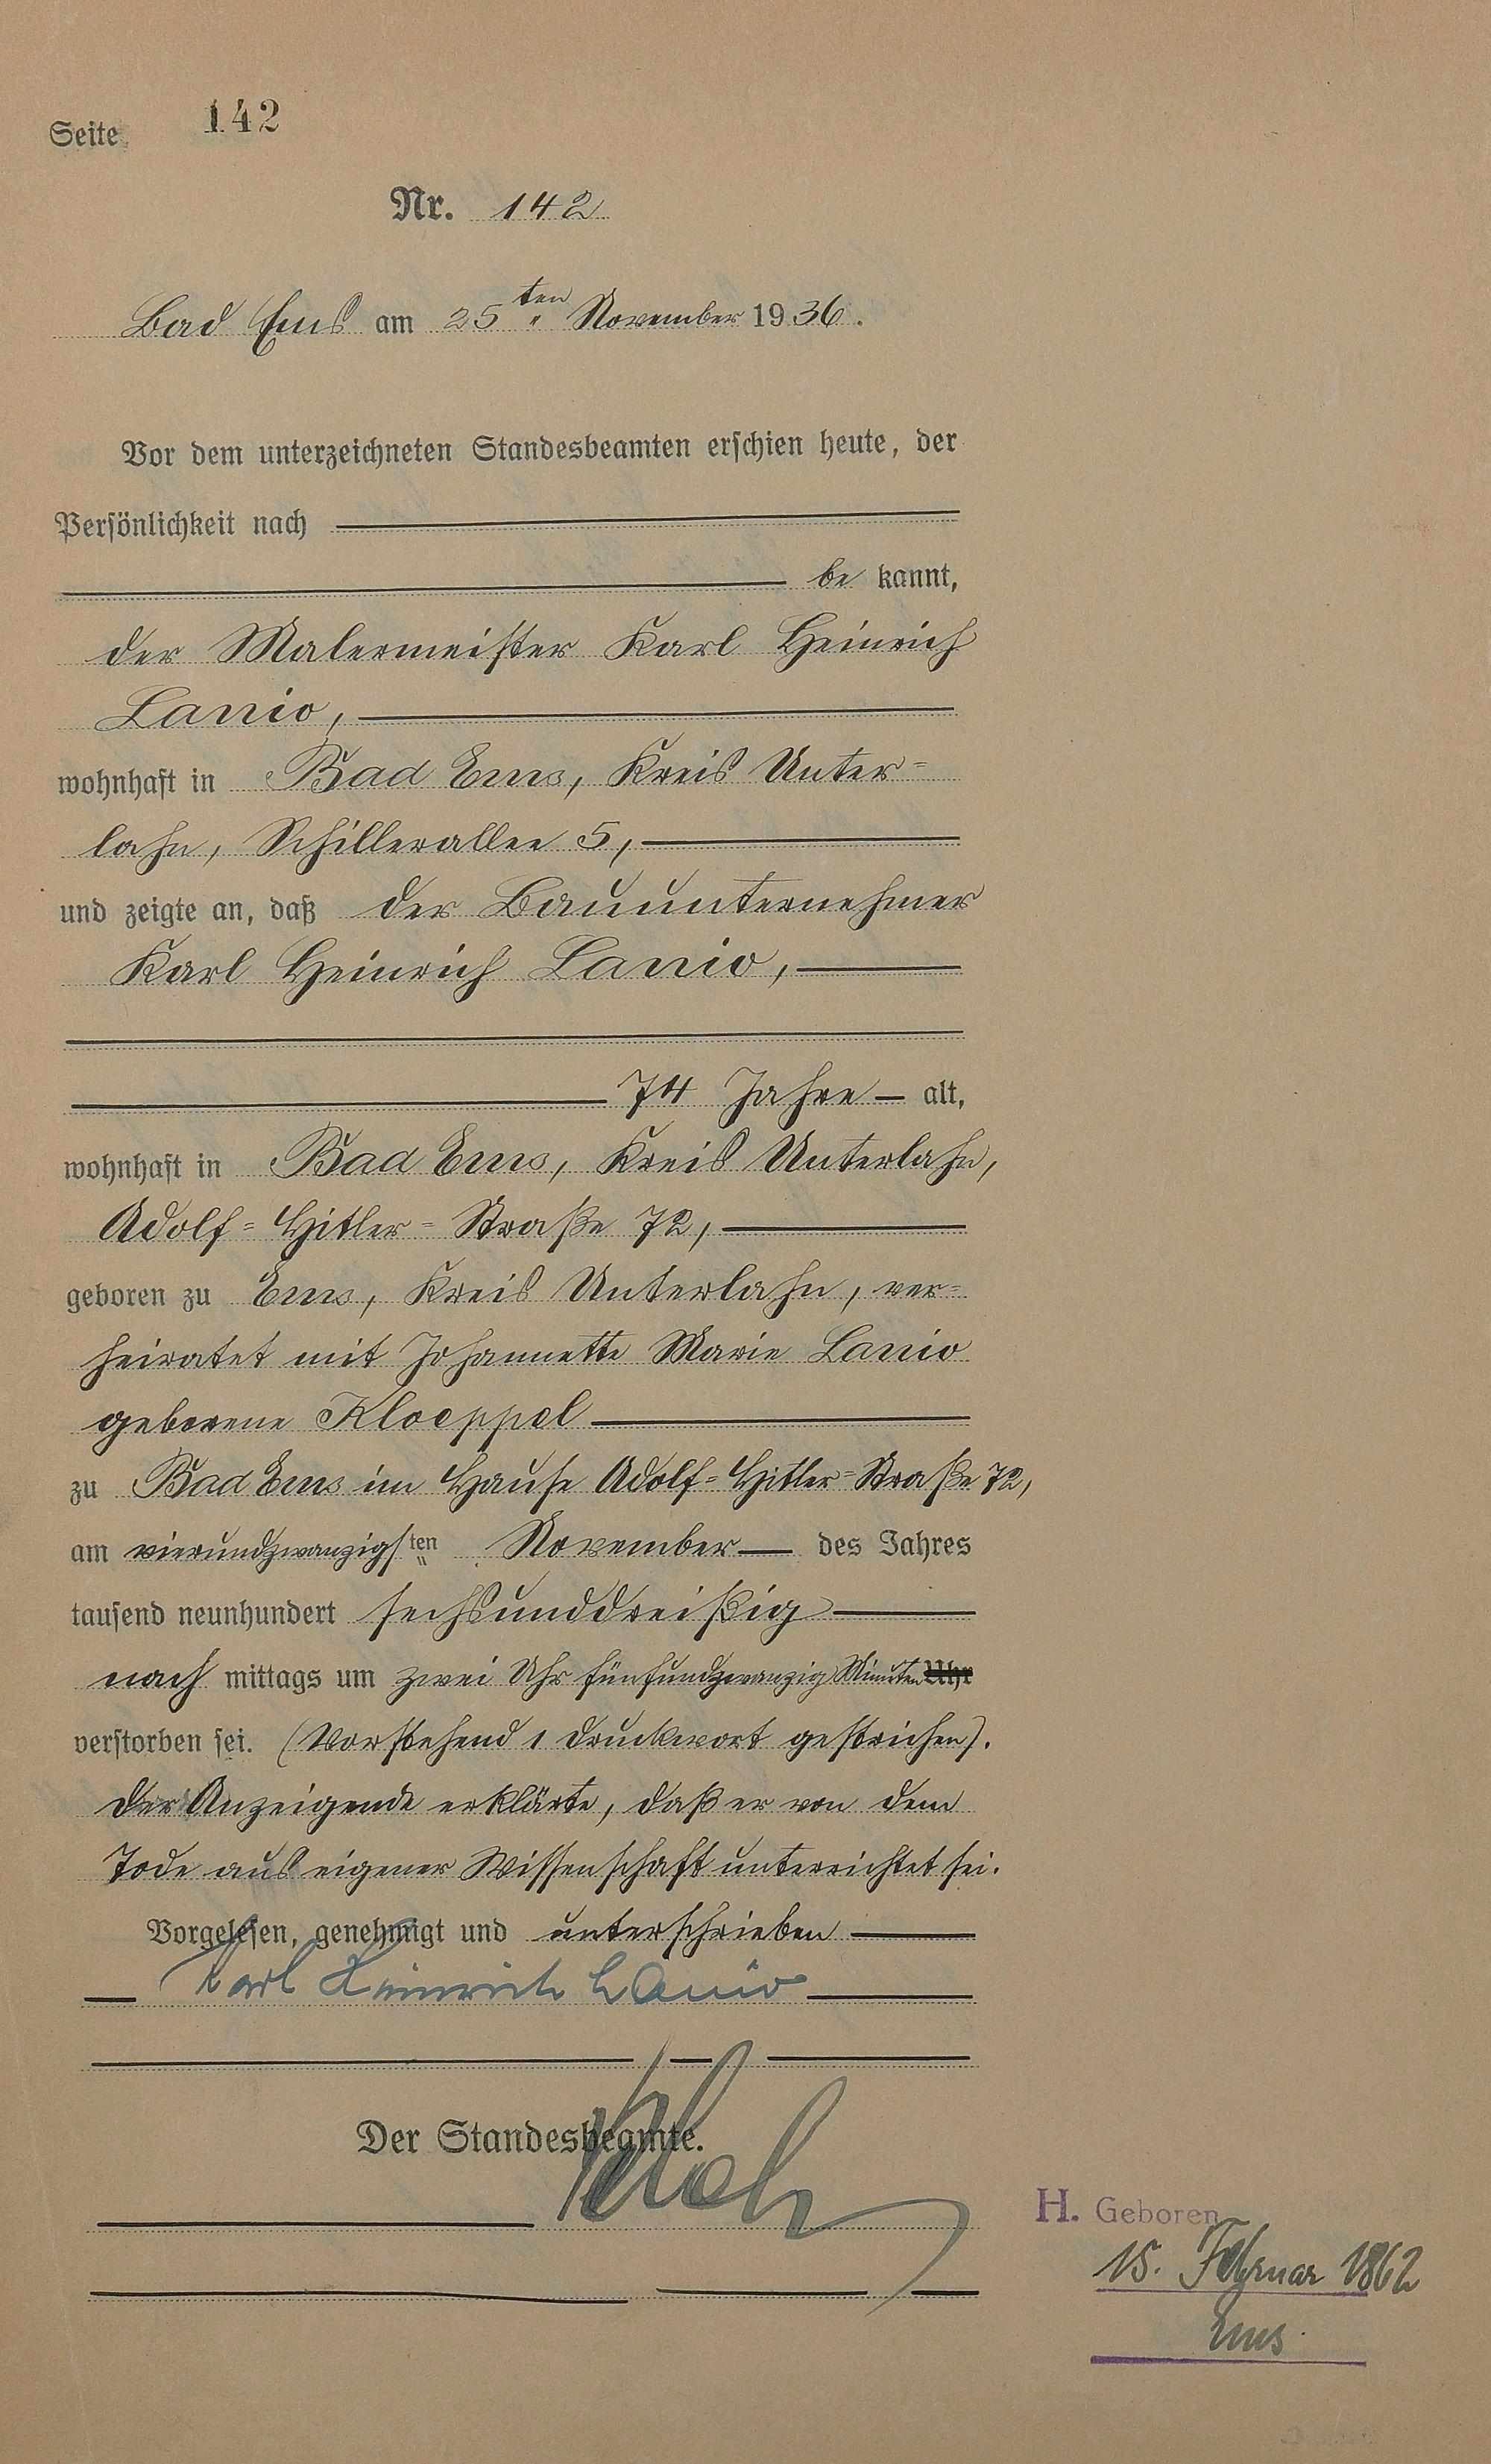 Seite 142
Nr. 142
Bad Ems am 25ten November 1936.
Vor dem unterzeichneten Standesbeamten erschien heute, der
Persönlichkeit nach
be kannt,
der Malermeister Karl Heinrich
Lanio,
wohnhaft in Bad Ems, Kreis Unter=
lahn, Schillerallee 5,
und zeigte an, daß der Bauunternehmer
Karl Heinrich Lanio,
74 Jahre alt,
wohnhaft in Bad Ems, Kreis Unterlahn,
Adolf=Hitler=Straße 72,
geboren zu Ems, Kreis Unterlahn, ver=
heiratet mit Johannette Marie Lanio
geborene Kloeppel
zu Bad Ems im Hause Adolf=Hitler=Straße 72,
am vierundzwanzigsten November des Jahres
tausend neunhundert sechsunddreißig
nach mittags um zwei Uhr fünfundzwanzig Minuten Uhr
verstorben sei. (Vorstehend 1 Druckwort gestrichen).
Der Anzeigende erklärte, daß er von dem
Tode aus eigener Wissenschaft unterrichtet sei.
Vorgelesen, genehmigt und unterschrieben
Karl Heinrich Lanio
Der Standesbeamte.
H. Geboren
15. Februar 1862
Ems